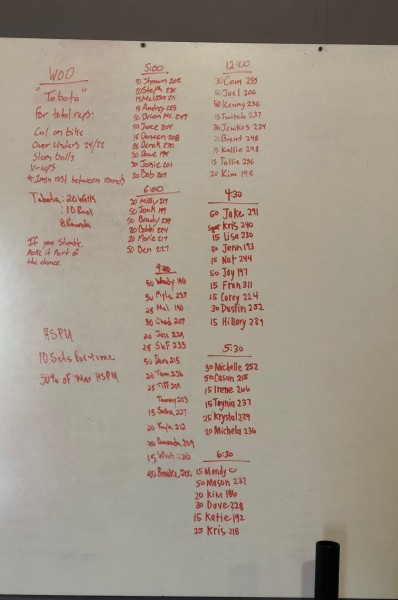 WOD
"Tabata"
For total reps:
Cal on bike
Over Unders 24/22
Slam balls
V-ups
* 1min rest between rounds
Tabata: 20 Work
10 Rest
8 Rounds
If you stumble,
make it part of
the dance.
HSPU
10 Sets For-time
50% of Max HSPU
5:00
50 Shawn 202
50 Steph 230
15 Melissa 211
15 Audrey 225
50 Brian Mc 247
50 Jorge 204
15 Doreen 208
25 Derek 270
50 Dave 194
30 Jamie 201
20 Bob 207
6:00
20 Missy 217
50 Jonk 199
50 Brady 239
20 254
20 Marie 217
50 Ben 227
9:00
50 Woody 190
50 Kyle 235
25 Mal 190
30 Chad 207
20 Jess 229
25 Stef 233
50 Dora 215
20 Tom 236
25 Tiff 209
Tammy 203
15 Selina 227
20 Kayla 212
20 Amanda 249
15
50 Brooke 202
12:00
30 Cam 253
50 Joel 206
50 Kenny 236
15 Twitch 237
30 Jenkes 224
20 Brent 248
15 Kallie 248
15 Tallie 236
20 Kim 198
4:30
50 Jake 291
Kris 240
15 Lisa 210
50 Jenn 193
15 Nat 244
50 Jay 197
15 Fran 311
15 Corey 224
30 Dustin 252
15 Hillary 289
5:30
30 Michelle 252
50 Cason 215
15 Irene 206
15 Taynia 237
25 Krystal 229
20 Michela 236
6:30
15 Mandy
50 Mason 237
20 Kim 186
30 Dave 228
15 Katie 192
25 Kris 218